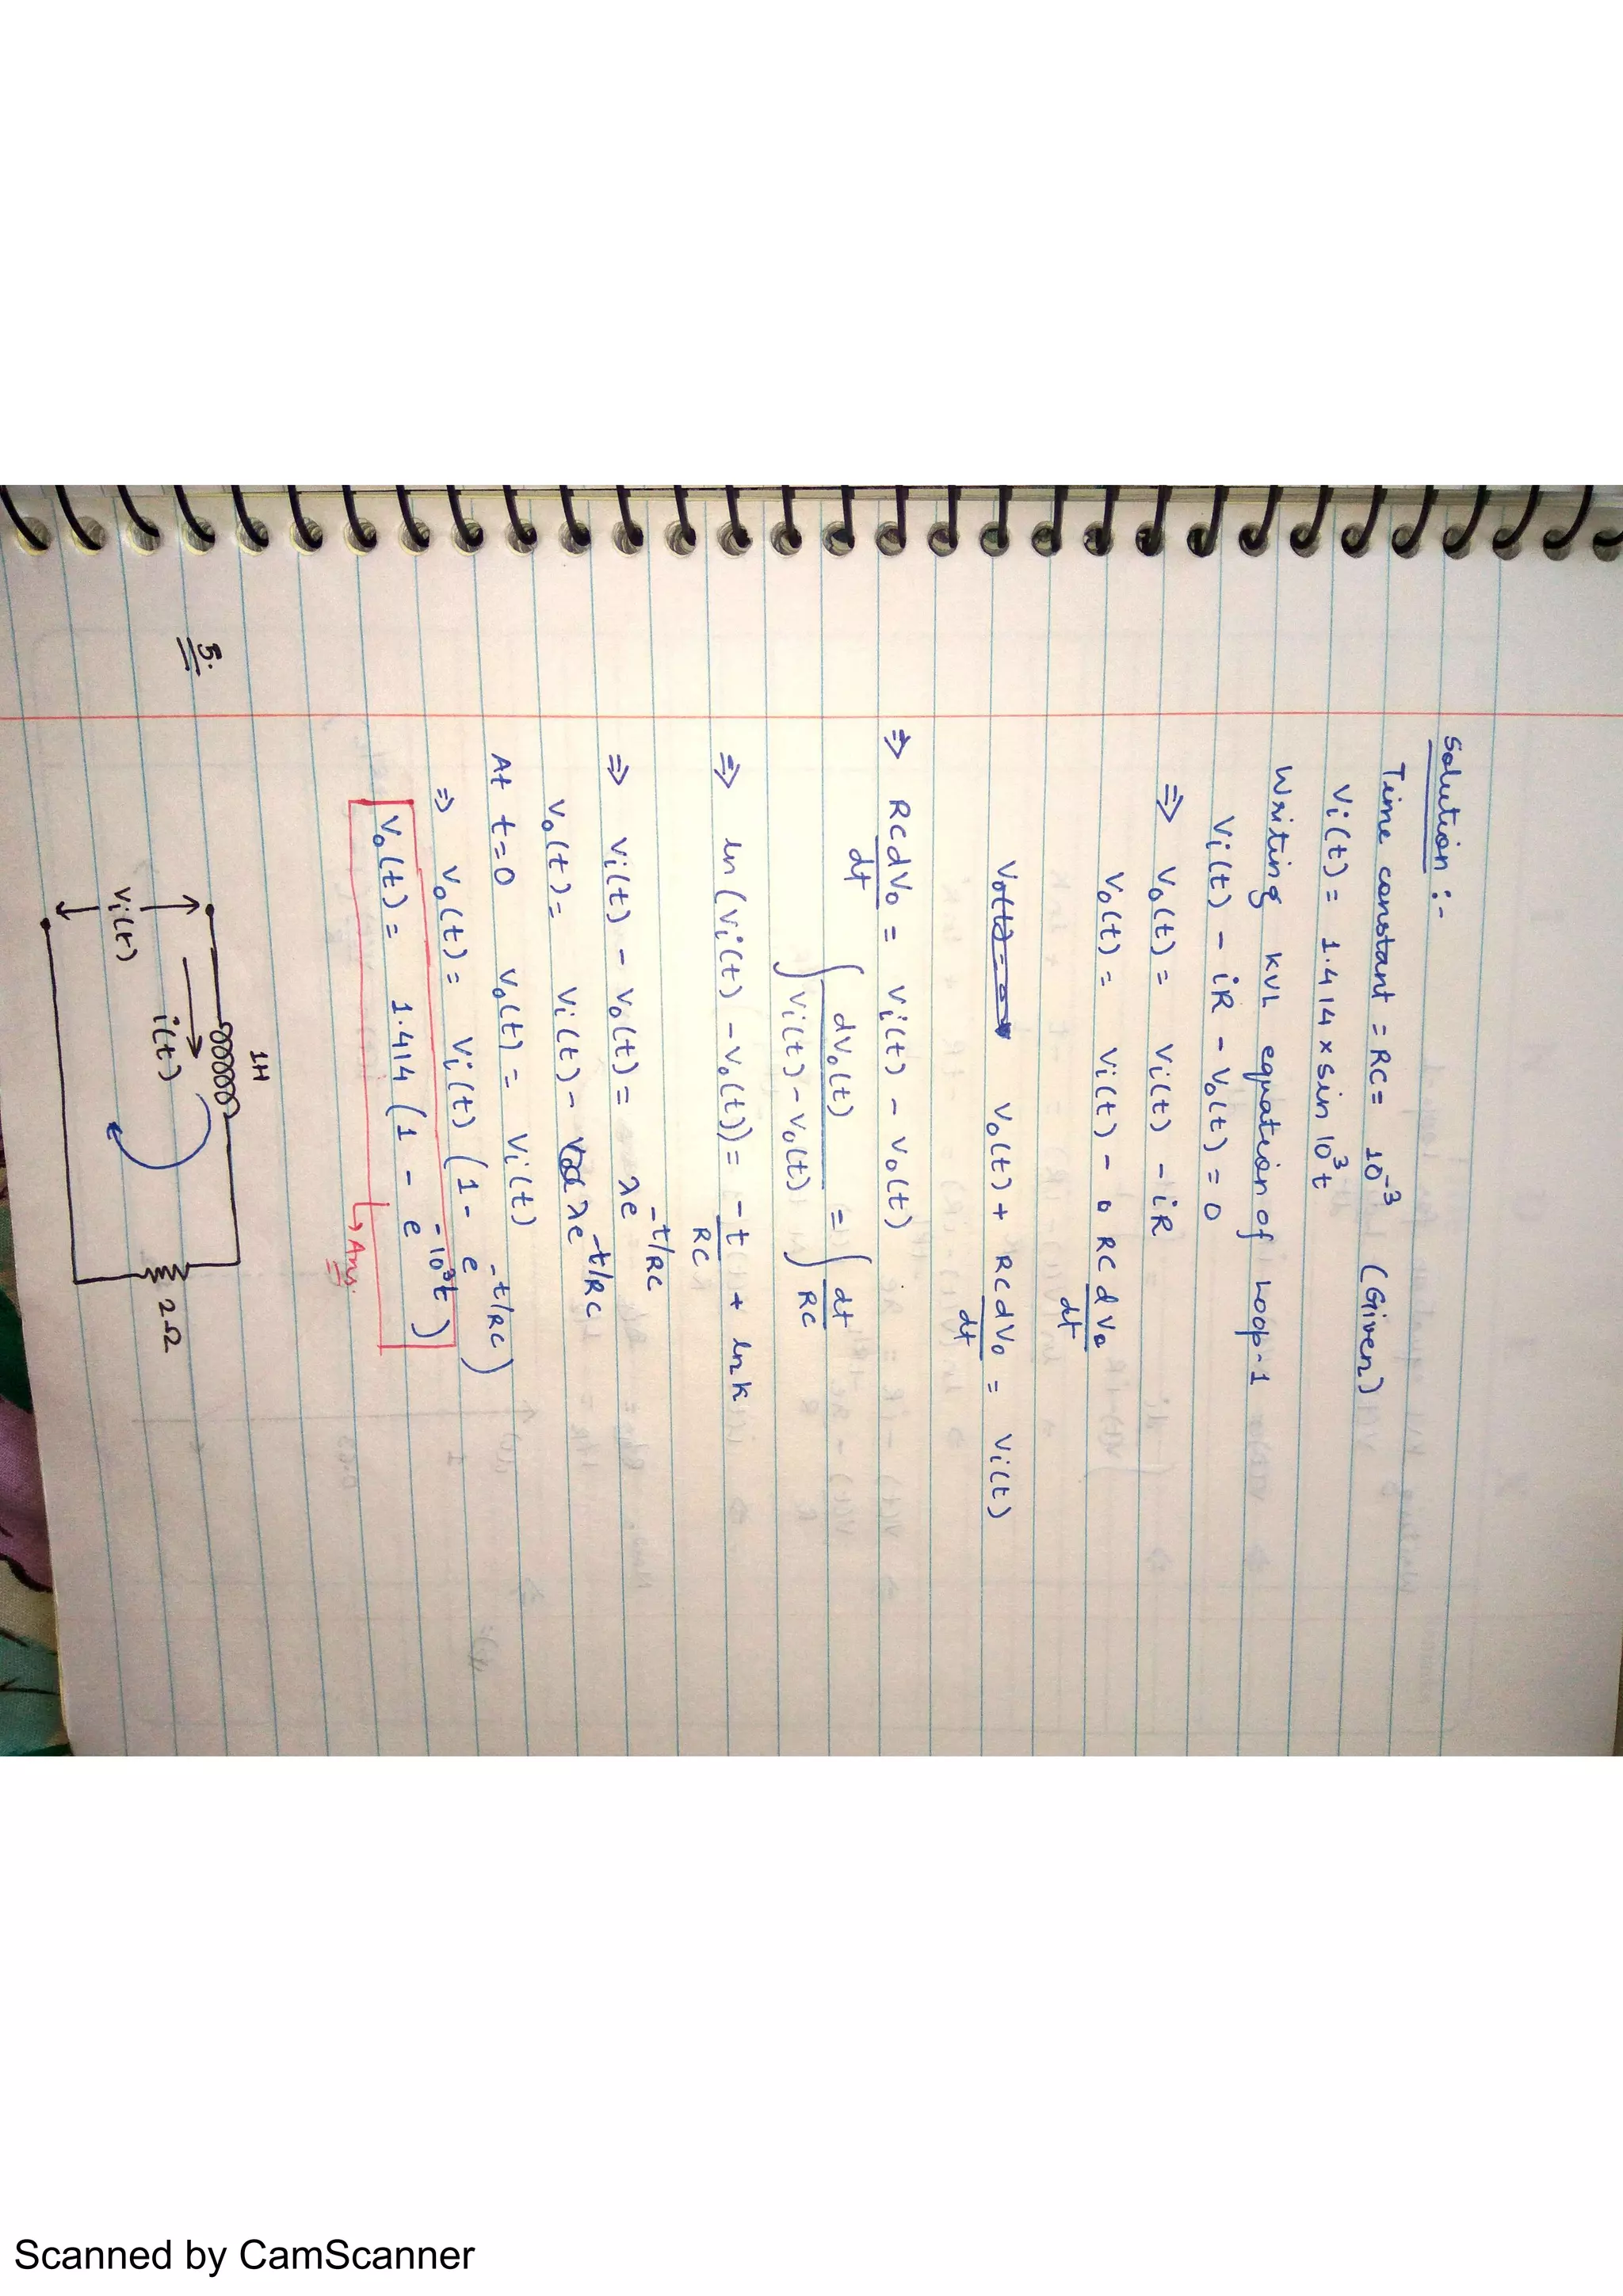 Solution :-
Time constant = RC = 10⁻³ (Given)
Vi(t) = 1.414 × sin 10³t
Writing KVL equation of Loop-1
Vi(t) - iR - Vo(t) = 0
⇒ Vo(t) = Vi(t) - iR
Vo(t) = Vi(t) - RC dVo/dt
Vo(t) + RC dVo/dt = Vi(t)
⇒ RC dVo/dt = Vi(t) - Vo(t)
∫ dVo(t)/(Vi(t) - Vo(t)) = ∫ dt/RC
⇒ ln (Vi(t) - Vo(t)) = -t/RC + ln k
⇒ Vi(t) - Vo(t) = λe^(-t/RC)
Vo(t) = Vi(t) - λe^(-t/RC)
At t=0 Vo(t) = Vi(t)
⇒ Vo(t) = Vi(t) (1 - e^(-t/RC))
Vo(t) = 1.414 (1 - e^(-10³t))
↳ Ans.
5.
1H
i(t)
Vi(t)
2Ω
Scanned by CamScanner